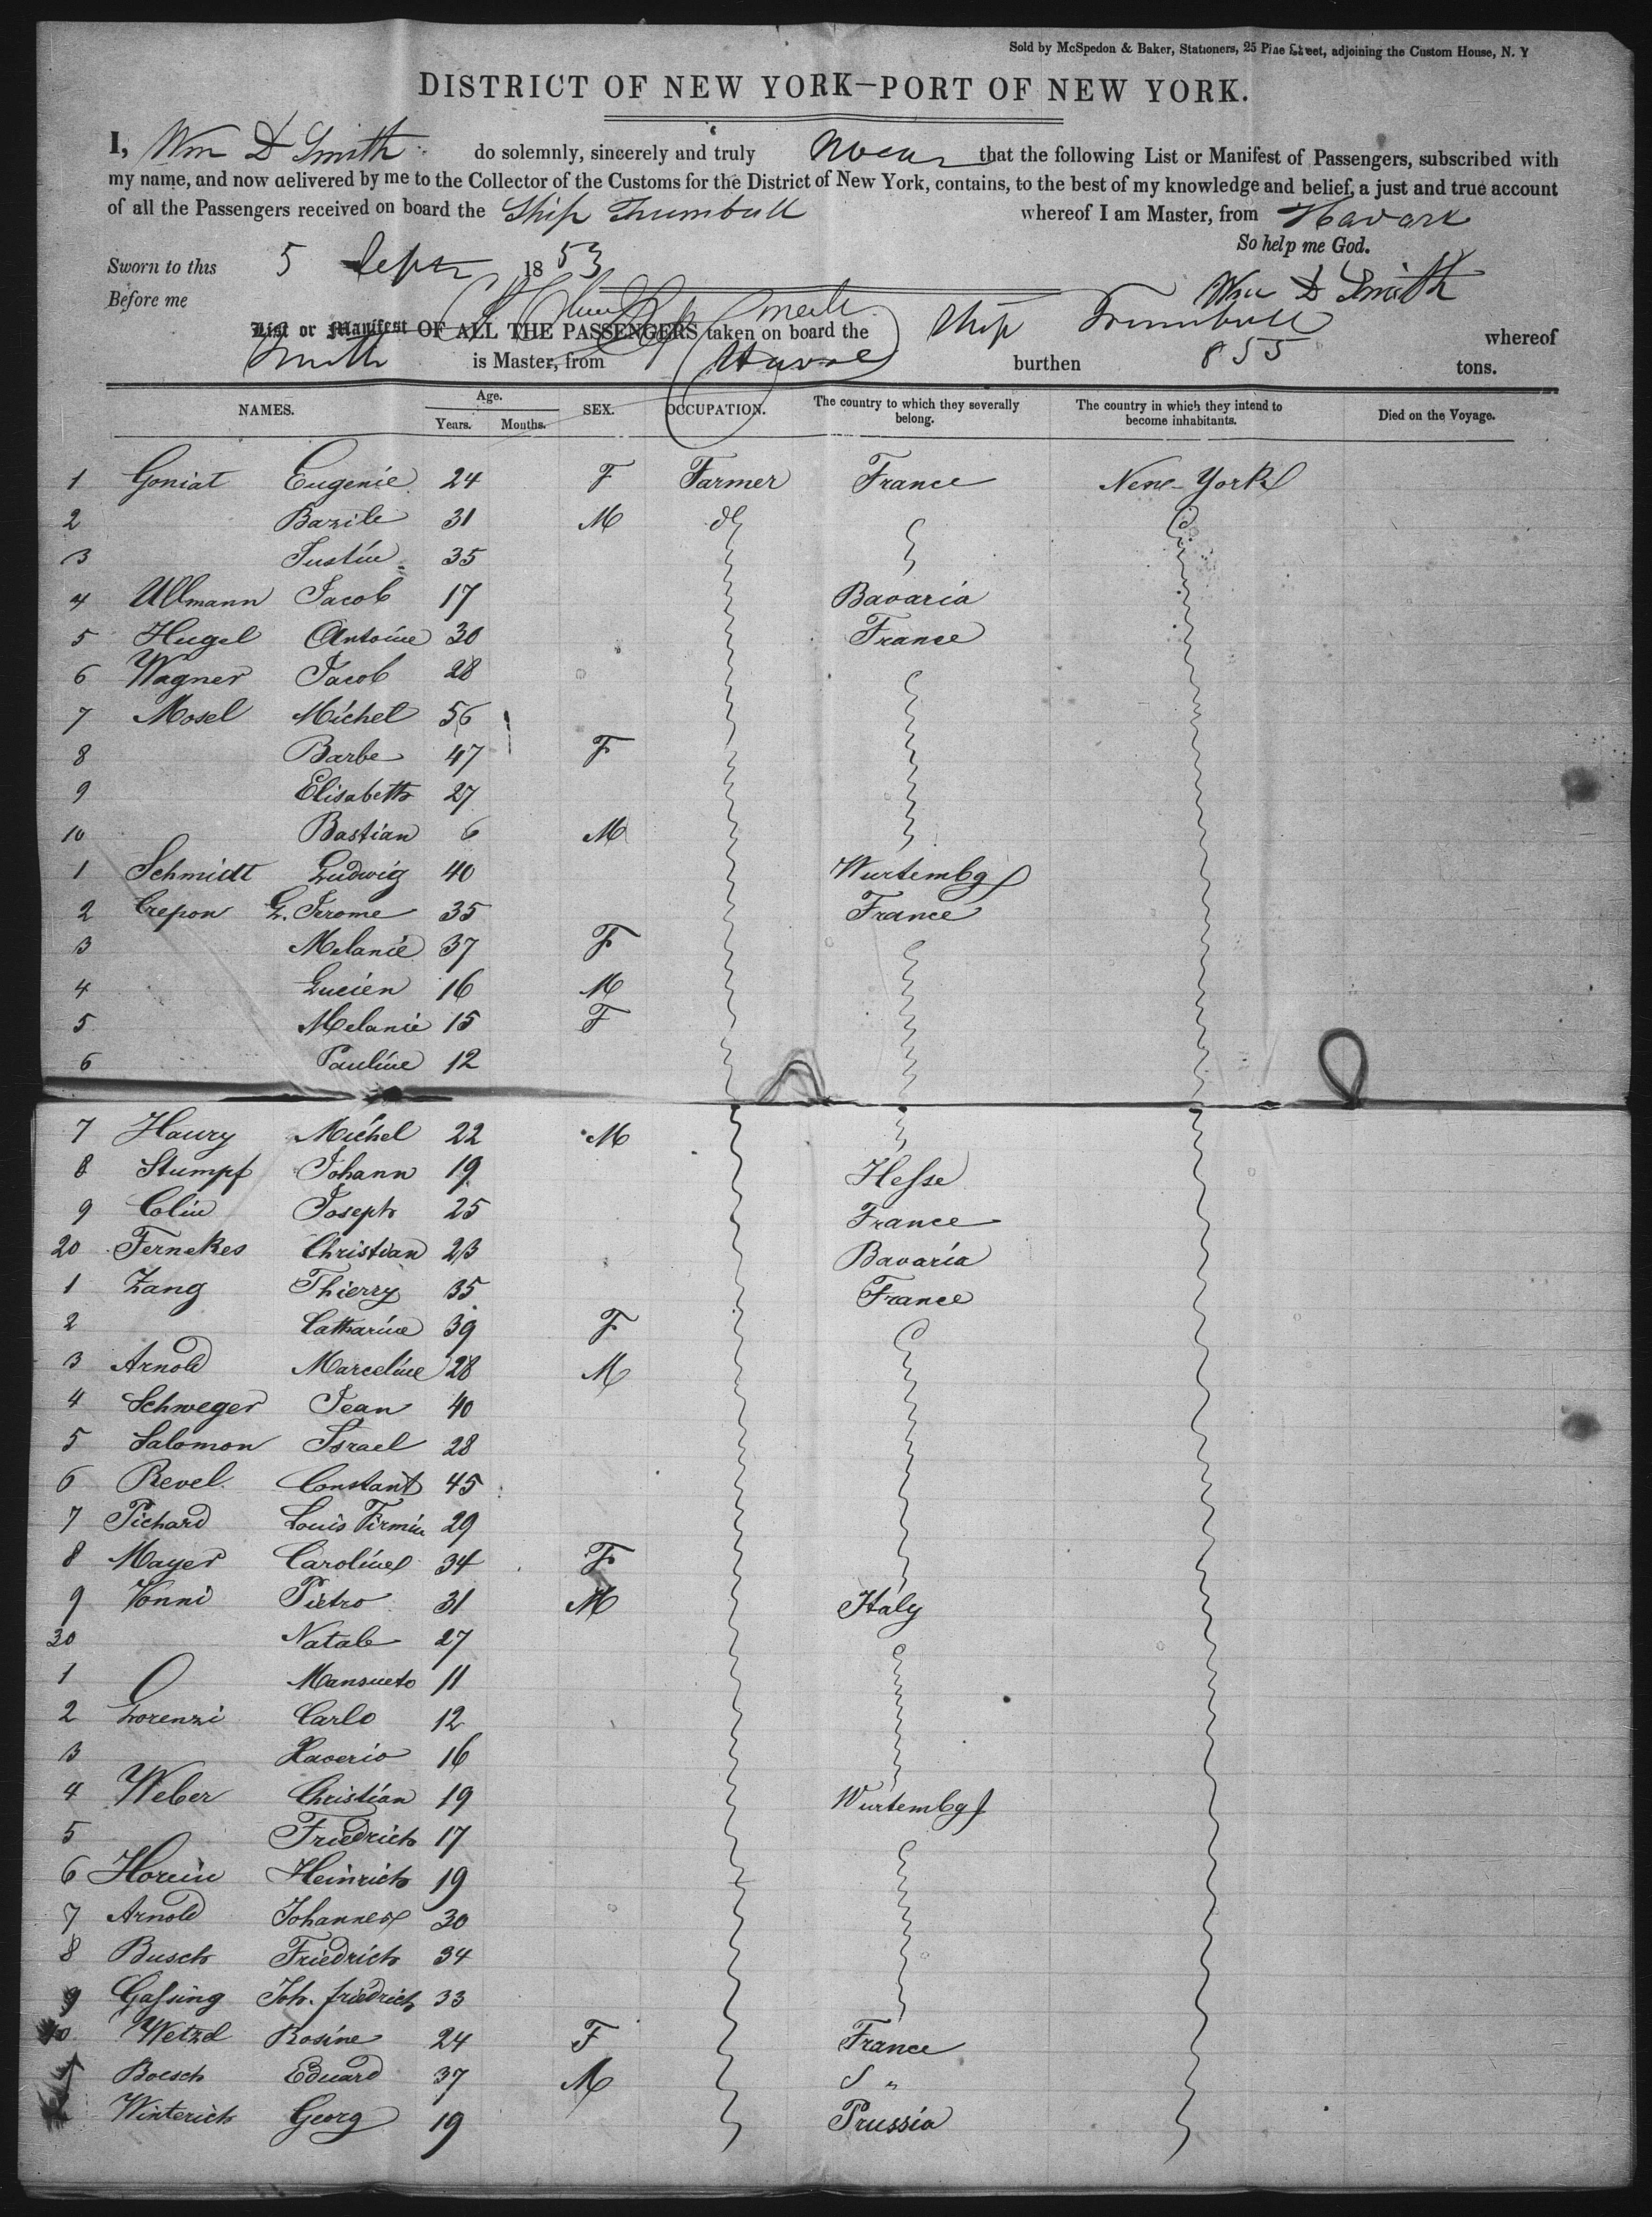 Sold by McSpedon & Baker, Stationers, 25 Pine Street, adjoining the Custom House, N. Y
DISTRICT OF NEW YORK—PORT OF NEW YORK.
I, Wm D Smith do solemnly, sincerely and truly swear that the following List or Manifest of Passengers, subscribed with
my name, and now delivered by me to the Collector of the Customs for the District of New York, contains, to the best of my knowledge and belief, a just and true account
of all the Passengers received on board the Ship Trumbull whereof I am Master, from Havare
So help me God.
Sworn to this 5 Sept 1853
Wm D Smith
Before me
List or Manifest OF ALL THE PASSENGERS taken on board the Ship Trumbull whereof
Smith is Master, from Havre burthen 855 tons.
NAMES. Age. Years. Months. SEX. OCCUPATION. The country to which they severally belong. The country in which they intend to become inhabitants. Died on the Voyage.
1 Goniat Eugenie 24 F Farmer France New-York
2 Bazile 31 M do
3 Justin 35
4 Ullmann Jacob 17 Bavaria
5 Hugel Antoine 30 France
6 Wagner Jacob 28
7 Mosel Michel 56
8 Barbe 47 F
9 Elisabeth 27
10 Bastian 6 M
1 Schmidt Ludwig 40 Wurtembg
2 Crepon L. Jerome 35 France
3 Melanie 37 F
4 Lucien 16 M
5 Melanie 15 F
6 Pauline 12
7 Haury Michel 22 M
8 Stumpf Johann 19 Hesse
9 Colin Joseph 25 France
20 Fernekes Christian 23 Bavaria
1 Zang Thierry 35 France
2 Catharine 39 F
3 Arnold Marceline 28 M
4 Schweger Jean 40
5 Salomon Israel 28
6 Revel Constant 45
7 Pichard Louis Firmin 29
8 Mayer Caroline 34 F
9 Vonni Pietro 31 M Italy
30 Natale 27
1 Mansueto 11
2 Lorenzi Carlo 12
3 Xaverio 16
4 Weber Christian 19 Wurtembg
5 Friedrich 17
6 Horein Heinrich 19
7 Arnold Johannes 30
8 Busch Friedrich 34
9 Gassing Joh. friedrich 33
40 Wetzel Rosine 24 F France
Boesch Eduard 37 M "
Winterich Georg 19 Prussia